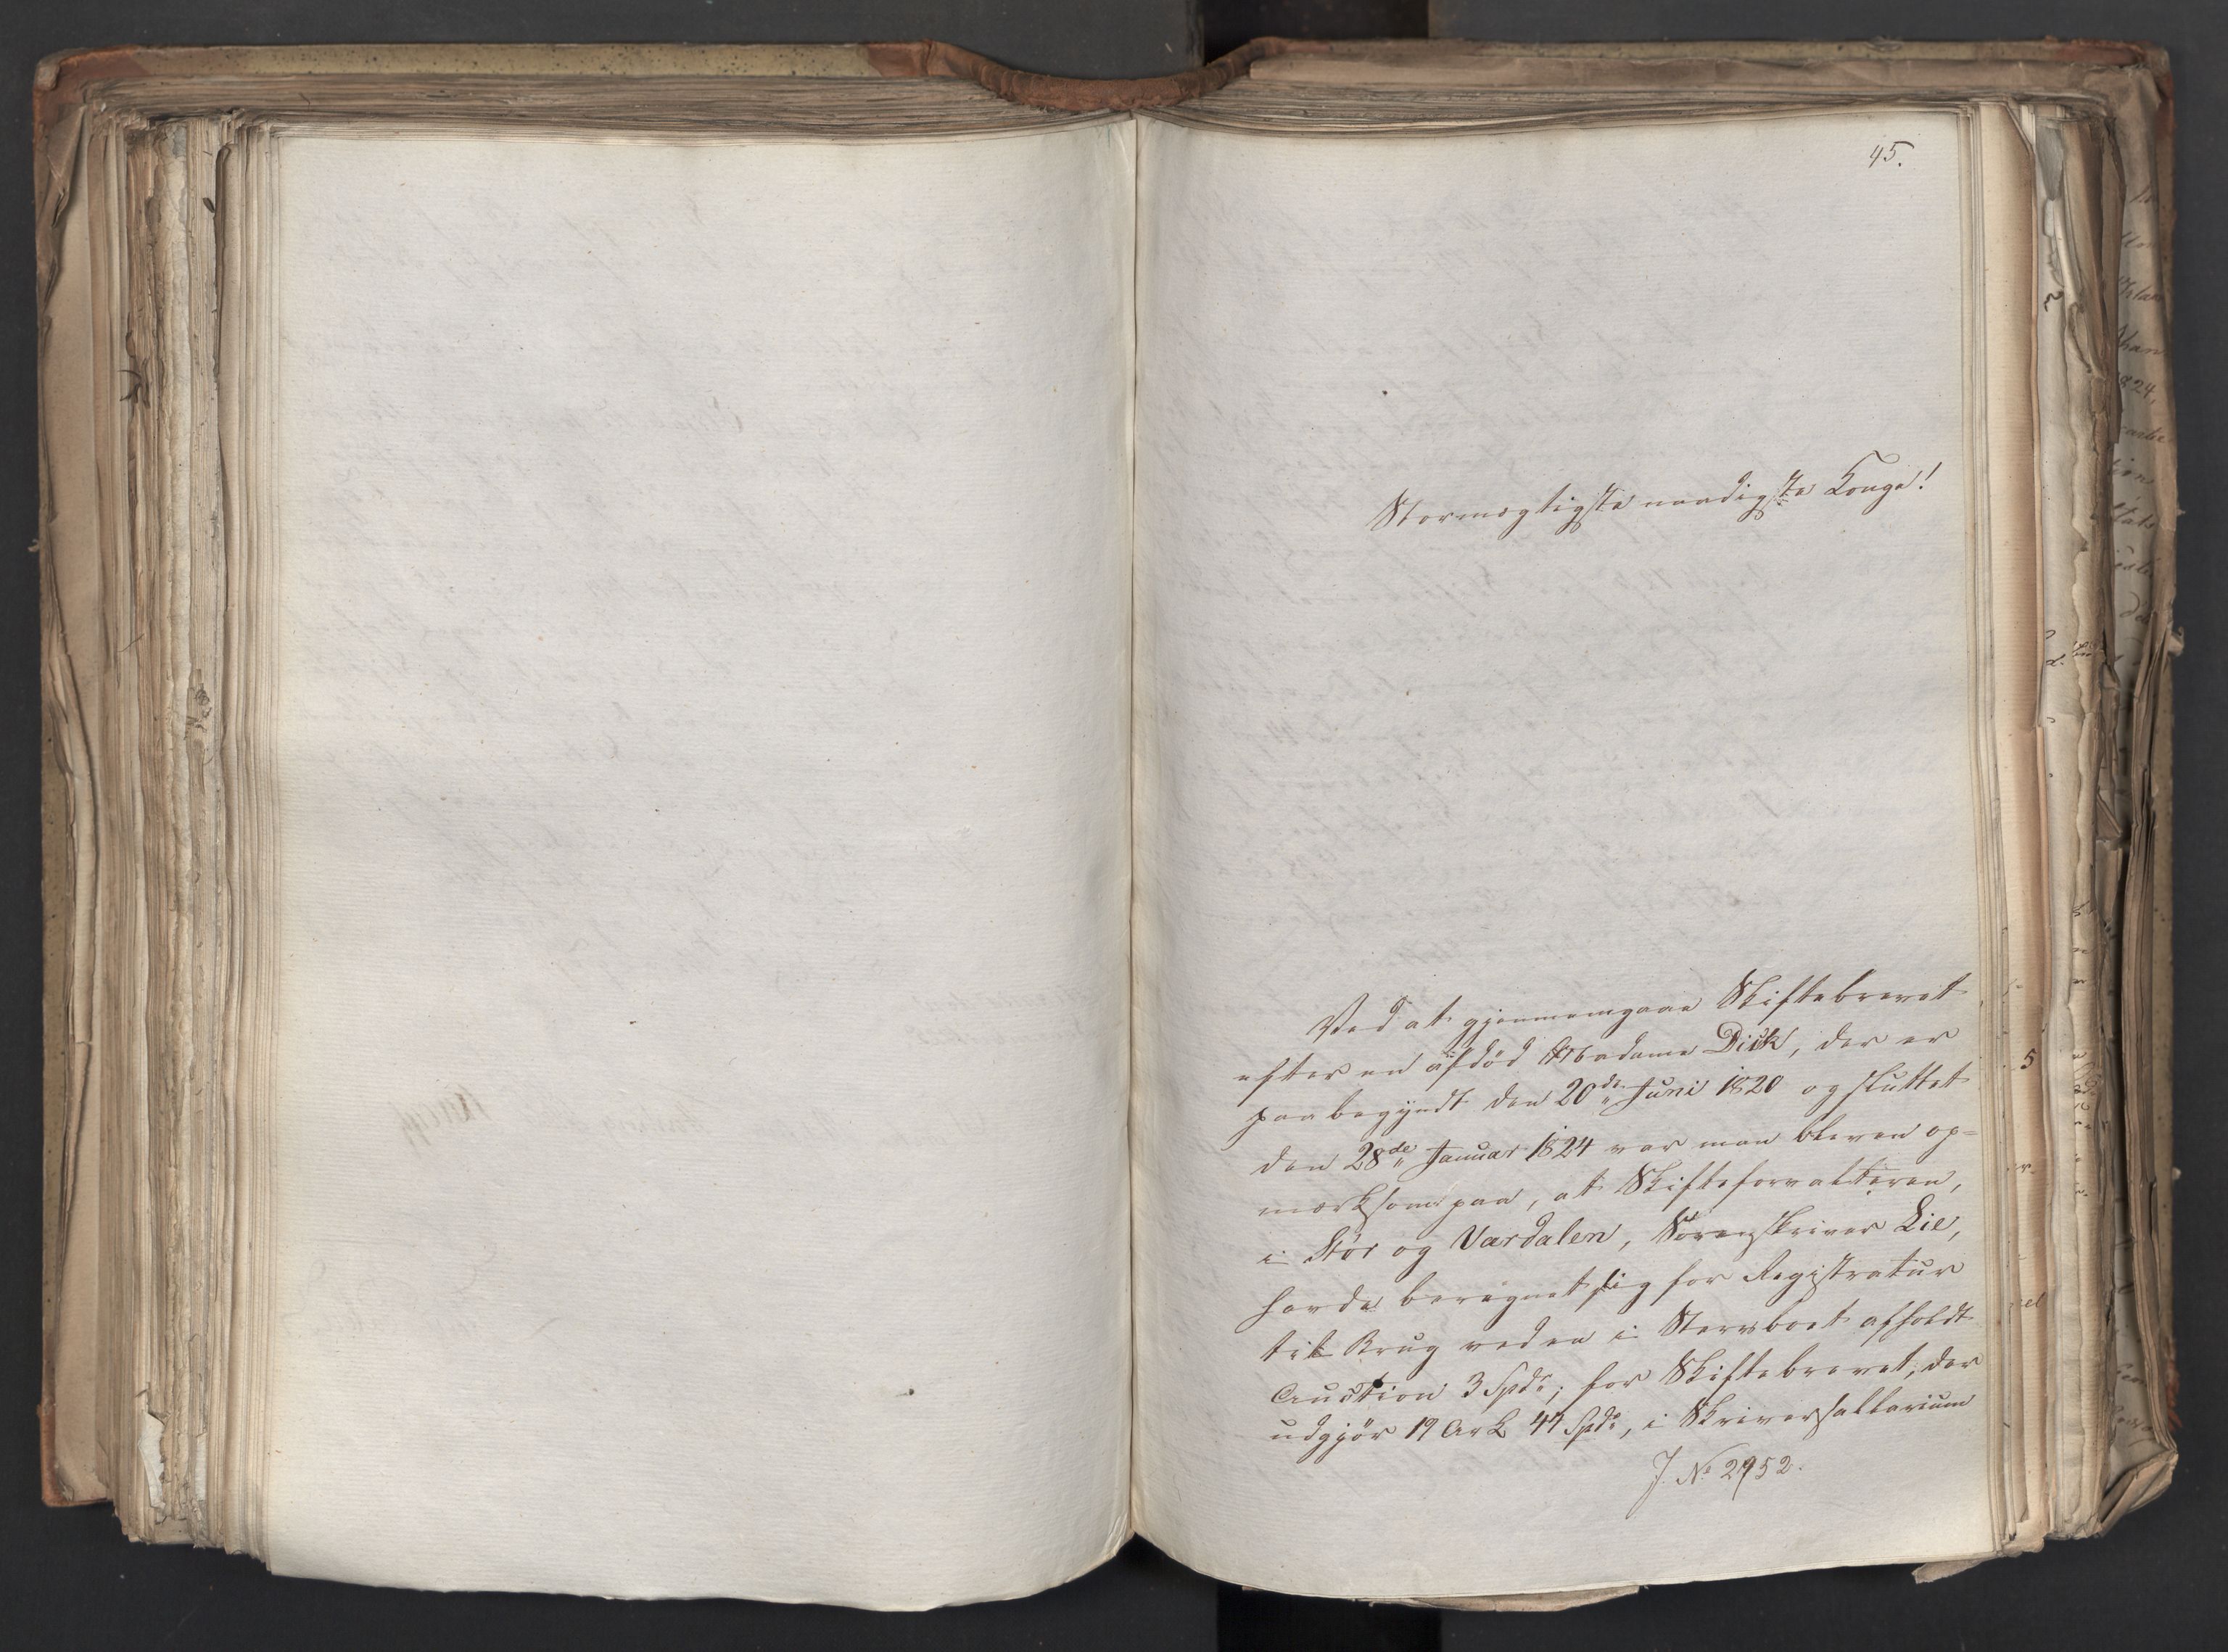 45.
Stormægtigste naadigste Konge!
Ved at gjennemgaae Skiftebrevet
efter en afdød Madame Dick, der er
paabegyndt den 20de Juni 1820 og sluttet
den 28de Januar 1824 var man bleven op=
mærksom paa, at Skifteforvalteren,
i Stør og Værdalen, Sorenskriver Lie,
havde beregnet sig for Registratur
til Brug ved en i Stervboet afholdt
Auction 3 Spdr, for Skiftebrevet, der
udgjør 19 Ark 44 Spdr, i Skriversallarium
J. No 2952.